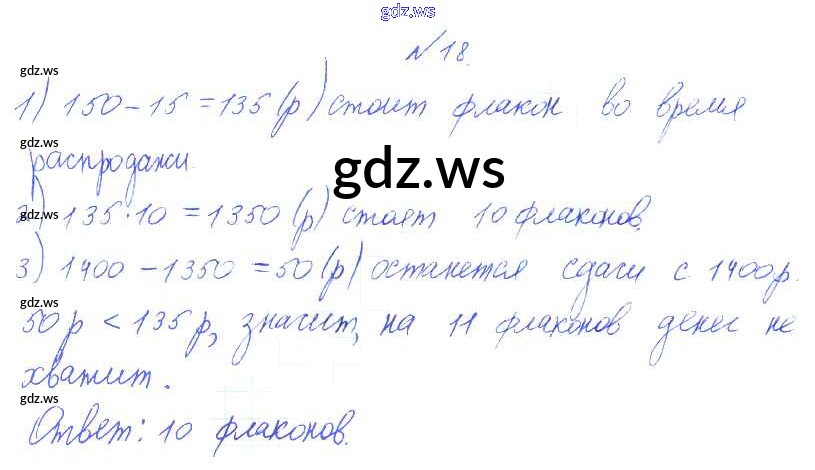 gdz.ws
№18.
gdz.ws
1) 150 – 15 = 135 (р) стоит флакон во время
gdz.ws
распродажи.
gdz.ws
gdz.ws
2) 135 · 10 = 1350 (р) стоят 10 флаконов.
3) 1400 – 1350 = 50 (р) останется сдачи с 1400 р.
gdz.ws
50 р < 135 р, значит, на 11 флаконов денег не
хватит.
gdz.ws
Ответ: 10 флаконов.